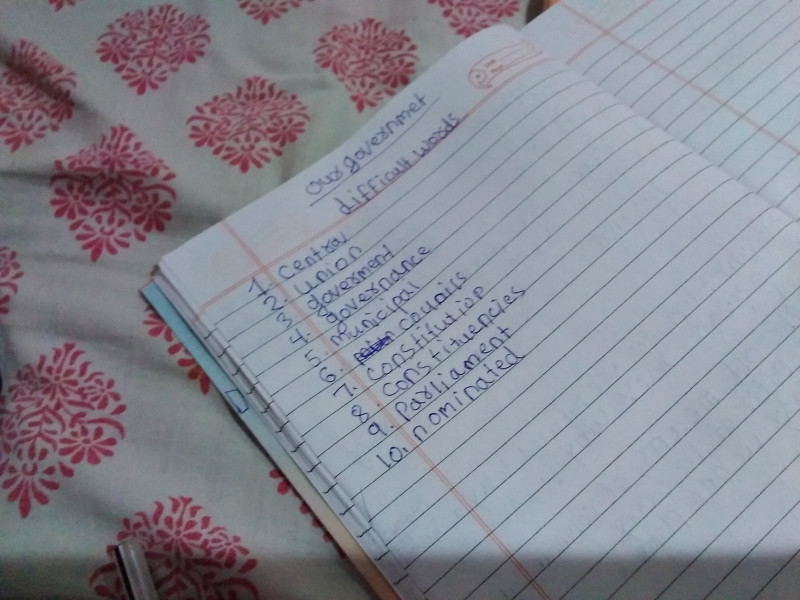 Our governmet
difficult words
1. Central
2. Union
3. goverment
4. governance
5. municipal
6. counils
7. constitution
8. constituencies
9. Parliament
10. nominated